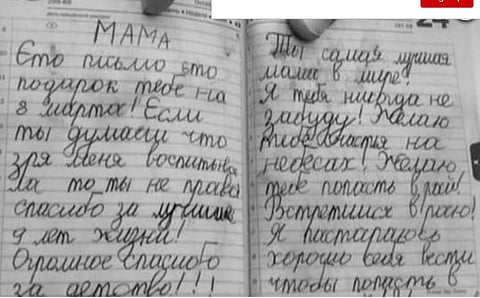 МАМА
Єто письмо єто
подарок тебе на
8 марта! Если
ты думаеш что
зря меня воспитыва
ла то ты не права
спасибо за лучшие
9 лет жизни!
Огромное спасибо
за детство!!!
24
Ты самая лучшая
мама в мире!
Я тебя никогда не
забуду! Желаю
тебе счастья на
небесах! Желаю
тебе попасть в рай!
Встретимся в раю!
Я пастараюсь
хорошо себя вести
чтобы попасть в